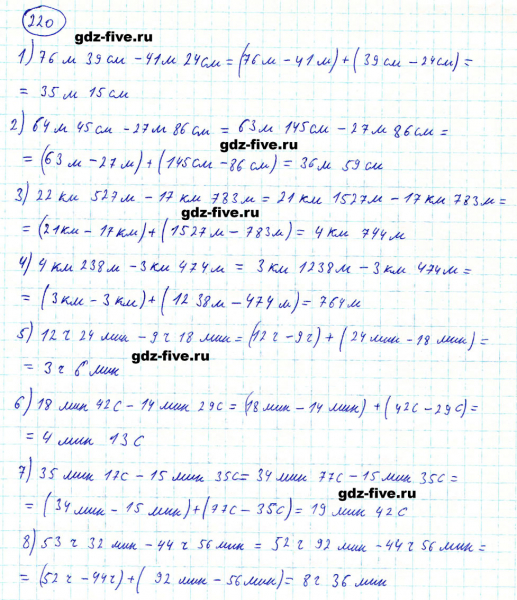 220
gdz-five.ru
1) 76 м 39 см - 41 м 24 см = (76 м - 41 м) + (39 см - 24 см) =
= 35 м 15 см
2) 64 м 45 см - 27 м 86 см = 63 м 145 см - 27 м 86 см =
gdz-five.ru
= (63 м - 27 м) + (145 см - 86 см) = 36 м 59 см
3) 22 км 527 м - 17 км 783 м = 21 км 1527 м - 17 км 783 м =
gdz-five.ru
= (21 км - 17 км) + (1527 м - 783 м) = 4 км 744 м
4) 4 км 238 м - 3 км 474 м = 3 км 1238 м - 3 км 474 м =
= (3 км - 3 км) + (1238 м - 474 м) = 764 м
5) 12 ч 24 мин - 9 ч 18 мин = (12 ч - 9 ч) + (24 мин - 18 мин) =
gdz-five.ru
= 3 ч 6 мин
6) 18 мин 42 с - 14 мин 29 с = (18 мин - 14 мин) + (42 с - 29 с) =
= 4 мин 13 с
7) 35 мин 17 с - 15 мин 35 с = 34 мин 77 с - 15 мин 35 с =
gdz-five.ru
= (34 мин - 15 мин) + (77 с - 35 с) = 19 мин 42 с
8) 53 ч 32 мин - 44 ч 56 мин = 52 ч 92 мин - 44 ч 56 мин =
= (52 ч - 44 ч) + (92 мин - 56 мин) = 8 ч 36 мин
gdz-five.ru